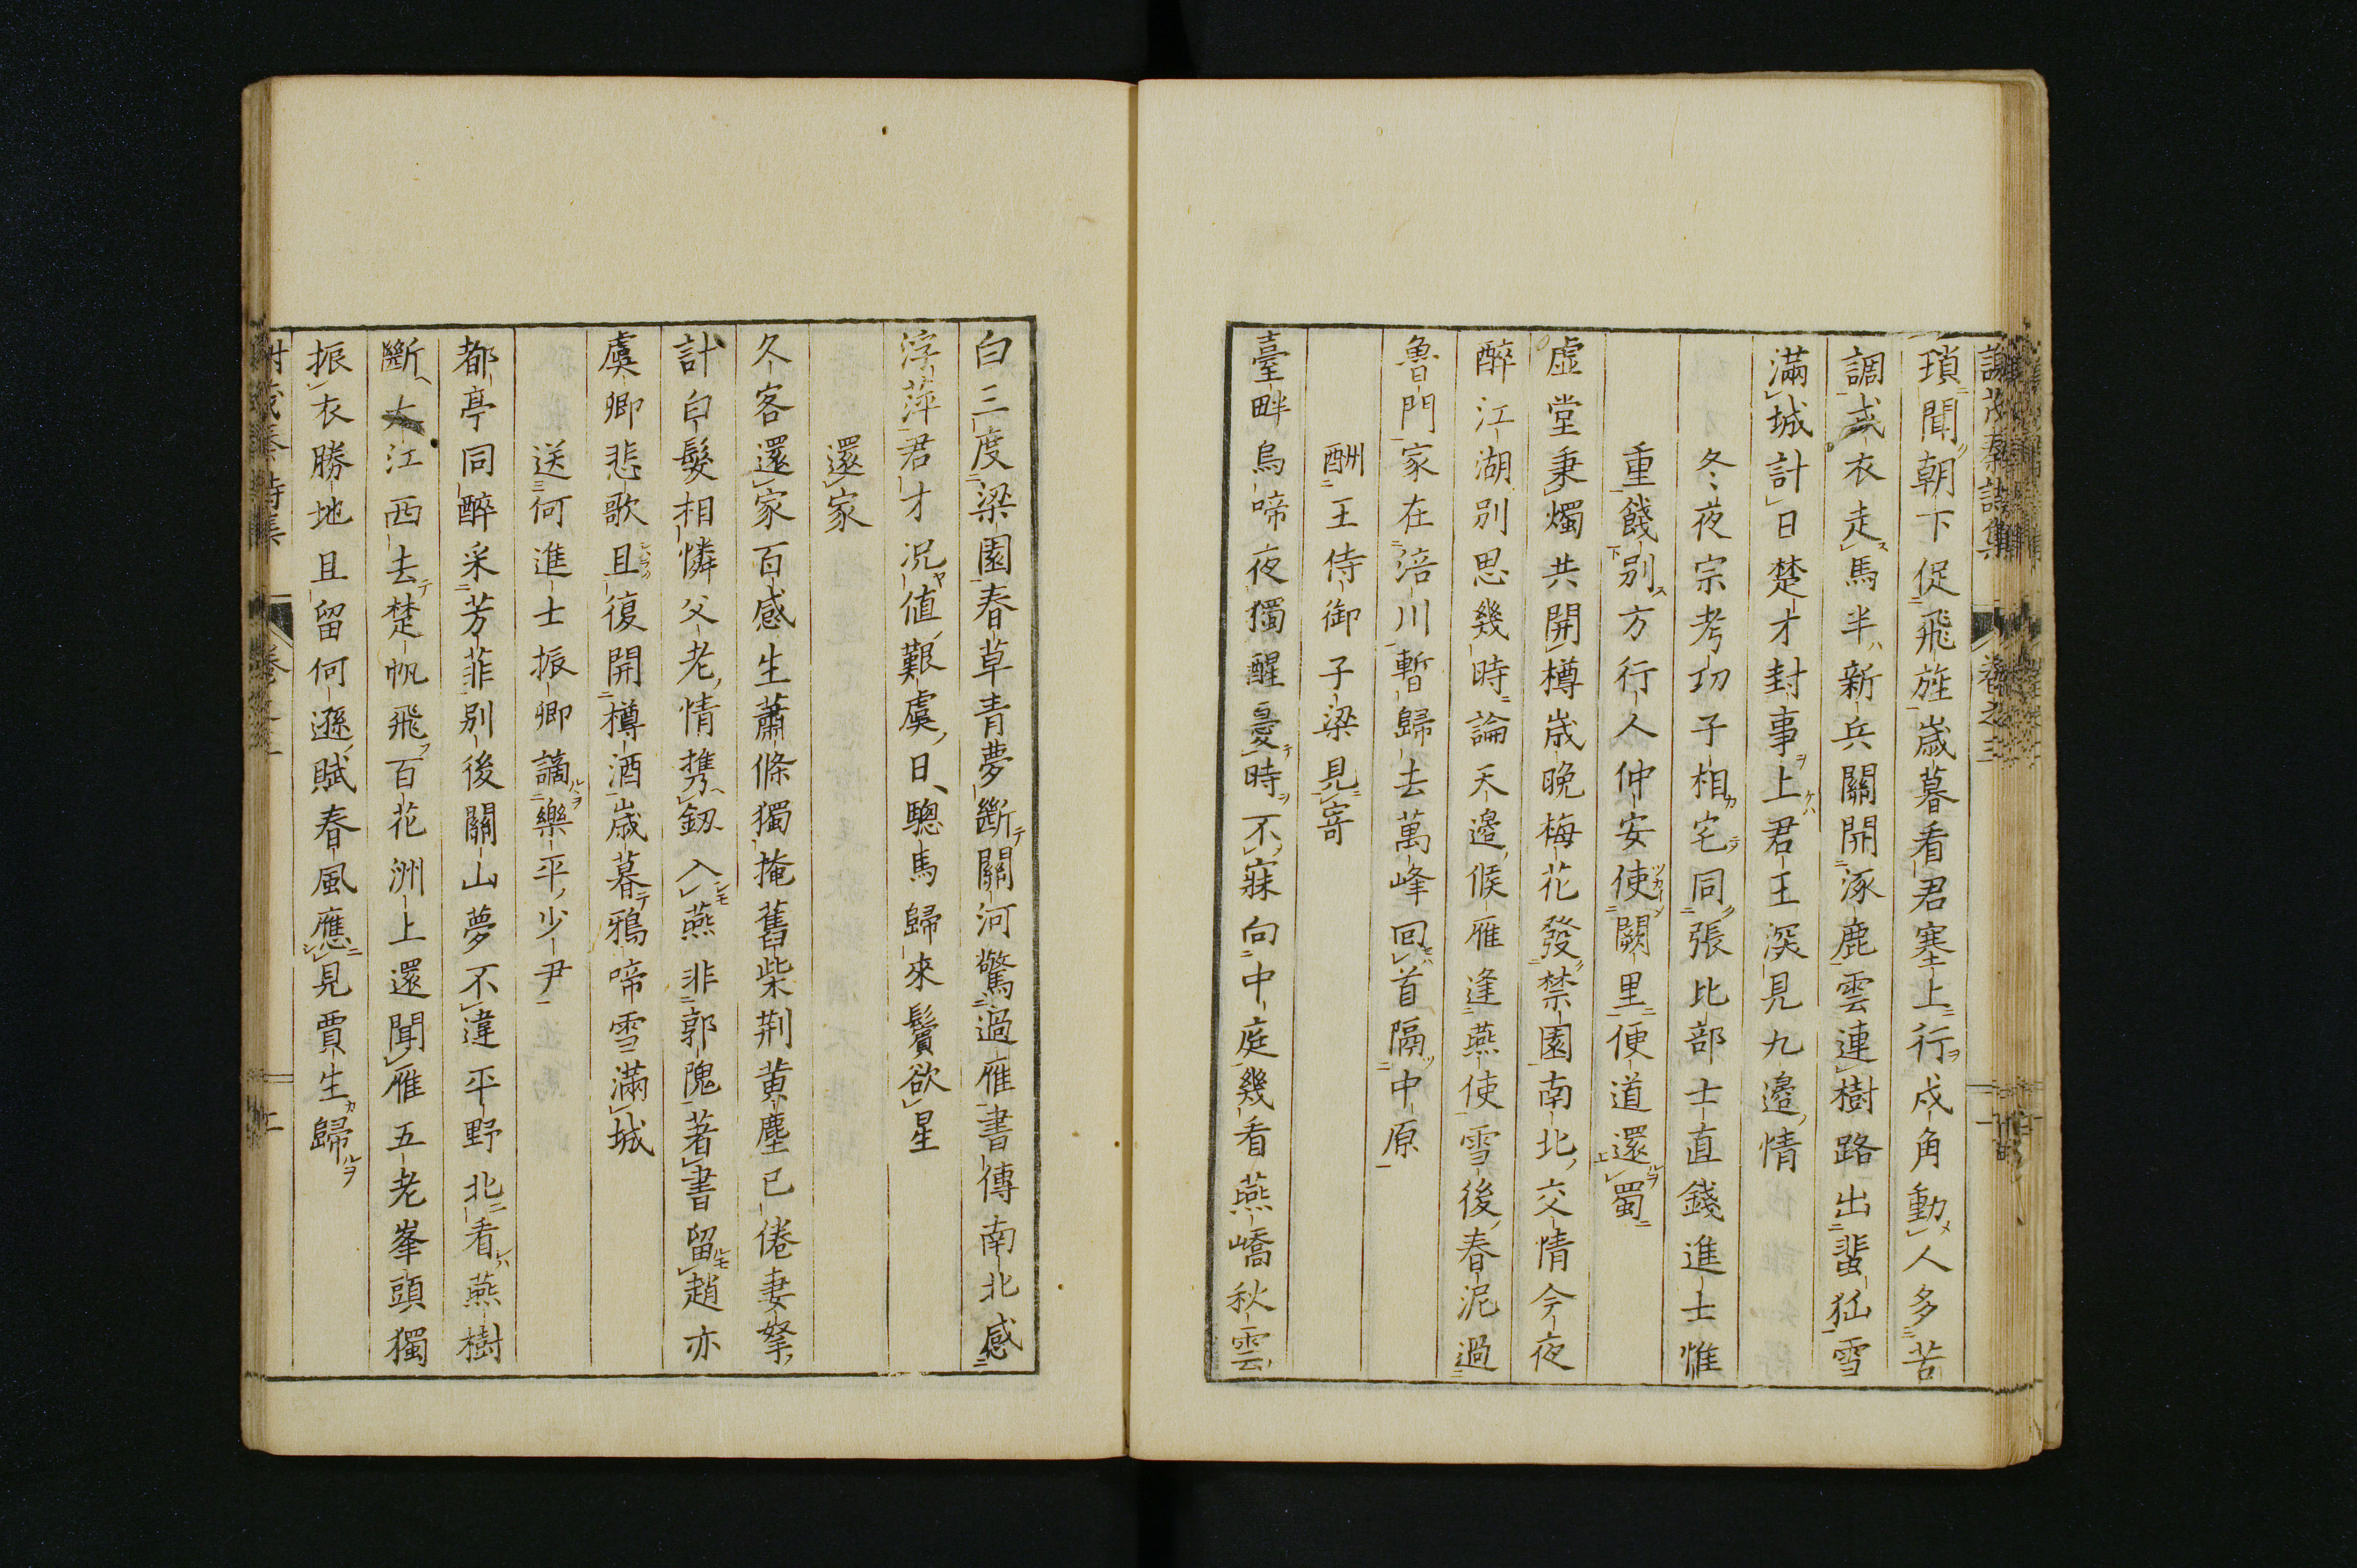 謝茂秦詩集 卷之三
瑣聞朝下促飛旌歲暮看君塞上行戍角動人多苦
調戎衣走馬半新兵關開涿鹿雲連樹路出蜚狐雪
滿城計日楚才封事上君王深見九邊情
冬夜宗考功子相宅同張比部士直錢進士惟
重餞別方行人仲安使闕里便道還蜀
虛堂秉燭共開樽歲晚梅花發禁園南北交情今夜
醉江湖別思幾時論天邊候雁逢燕使雪後春泥過
魯門家在涪川暫歸去萬峰回首隔中原
酬王侍御子梁見寄
臺畔烏啼夜獨醒憂時不寐向中庭幾看燕嶠秋雲
白三度梁園春草青夢斷關河驚過雁書傳南北感
浮萍君才況值艱虞日驄馬歸來鬢欲星
還家
久客還家百感生蕭條獨掩舊柴荆黃塵已倦妻孥
計白髮相憐父老情攜劒入燕非郭隗著書留趙亦
虞卿悲歌且復開樽酒歲暮鴉啼雪滿城
送何進士振卿謫樂平少尹
都亭同醉采芳菲別後關山夢不違平野北看燕樹
斷大江西去楚帆飛百花洲上還聞雁五老峯頭獨
振衣勝地且留何遜賦春風應見賈生歸
謝茂秦詩集 卷之三